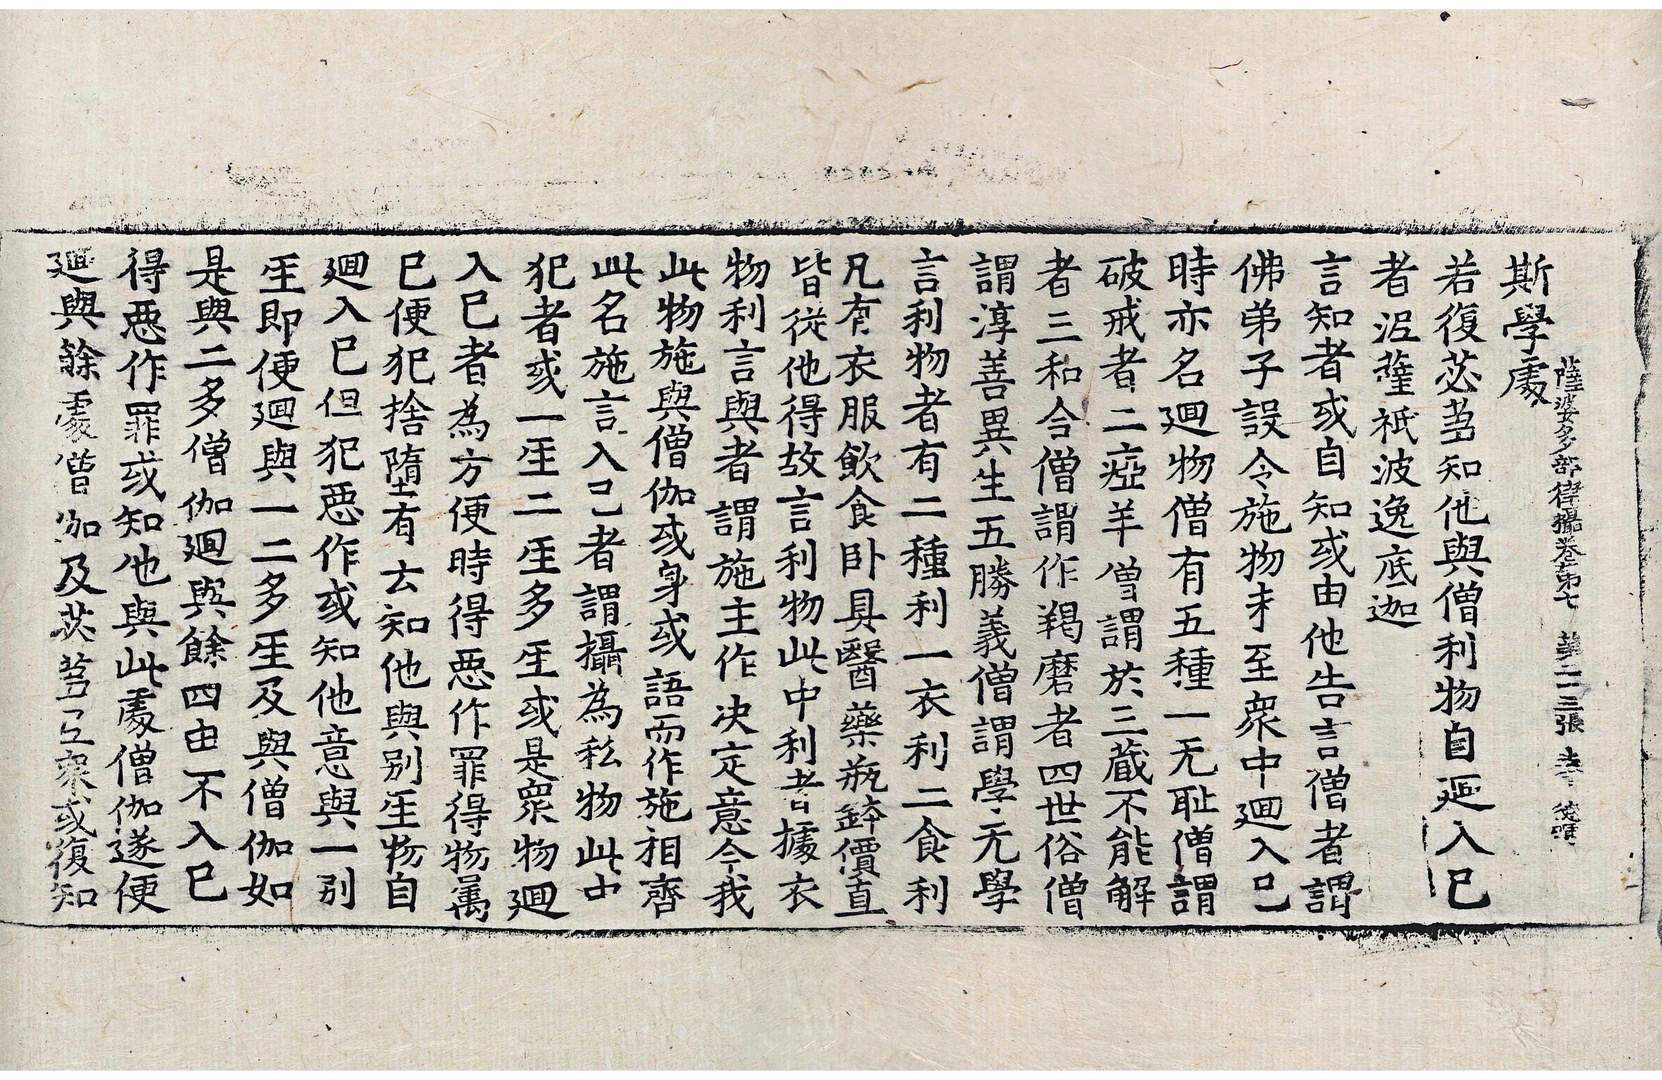 薩婆多部律攝卷第七　第二三張　孝
斯學處
若復苾蒭知他與僧利物自迴入己
者泥薩祇波逸底迦
言知者或自知或由他告言僧者謂
佛弟子設令施物未至衆中迴入己
時亦名迴物僧有五種一无恥僧謂
破戒者二瘂羊僧謂於三藏不能解
者三和合僧謂作羯磨者四世俗僧
謂淳善異生五勝義僧謂學无學
言利物者有二種利一衣利二食利
凡有衣服飲食臥具醫藥瓶鉢價直
皆從他得故言利物此中利者據衣
物利言與者謂施主作決定意今我
此物施與僧伽或身或語而作施相齊
此名施言入己者謂攝為私物此中
犯者或一𤯔二𤯔多𤯔或是衆物迴
入己者為方便時得惡作罪得物屬
己便犯捨墮有云知他與別𤯔物自
迴入己但犯惡作或知他意與一別
𤯔即便迴與一二多𤯔及與僧伽如
是與二多僧伽迴與餘四由不入己
得惡作罪或知他與此處僧伽遂便
迴與餘處僧伽及苾蒭尼衆或復知